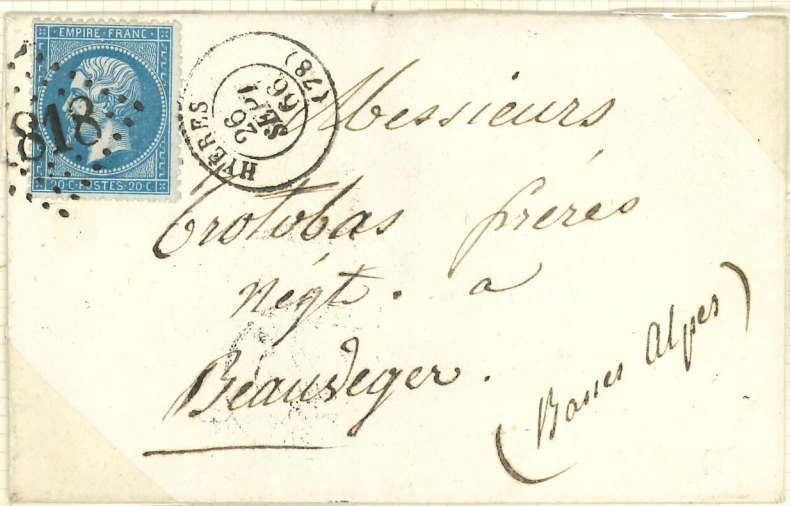 EMPIRE FRANC
818
20 C POSTES 20 C
HYERES
26
SEPT
66
(78)
Messieurs
Trotobas frères
négt. a
Beauveger.
(Basses Alpes)